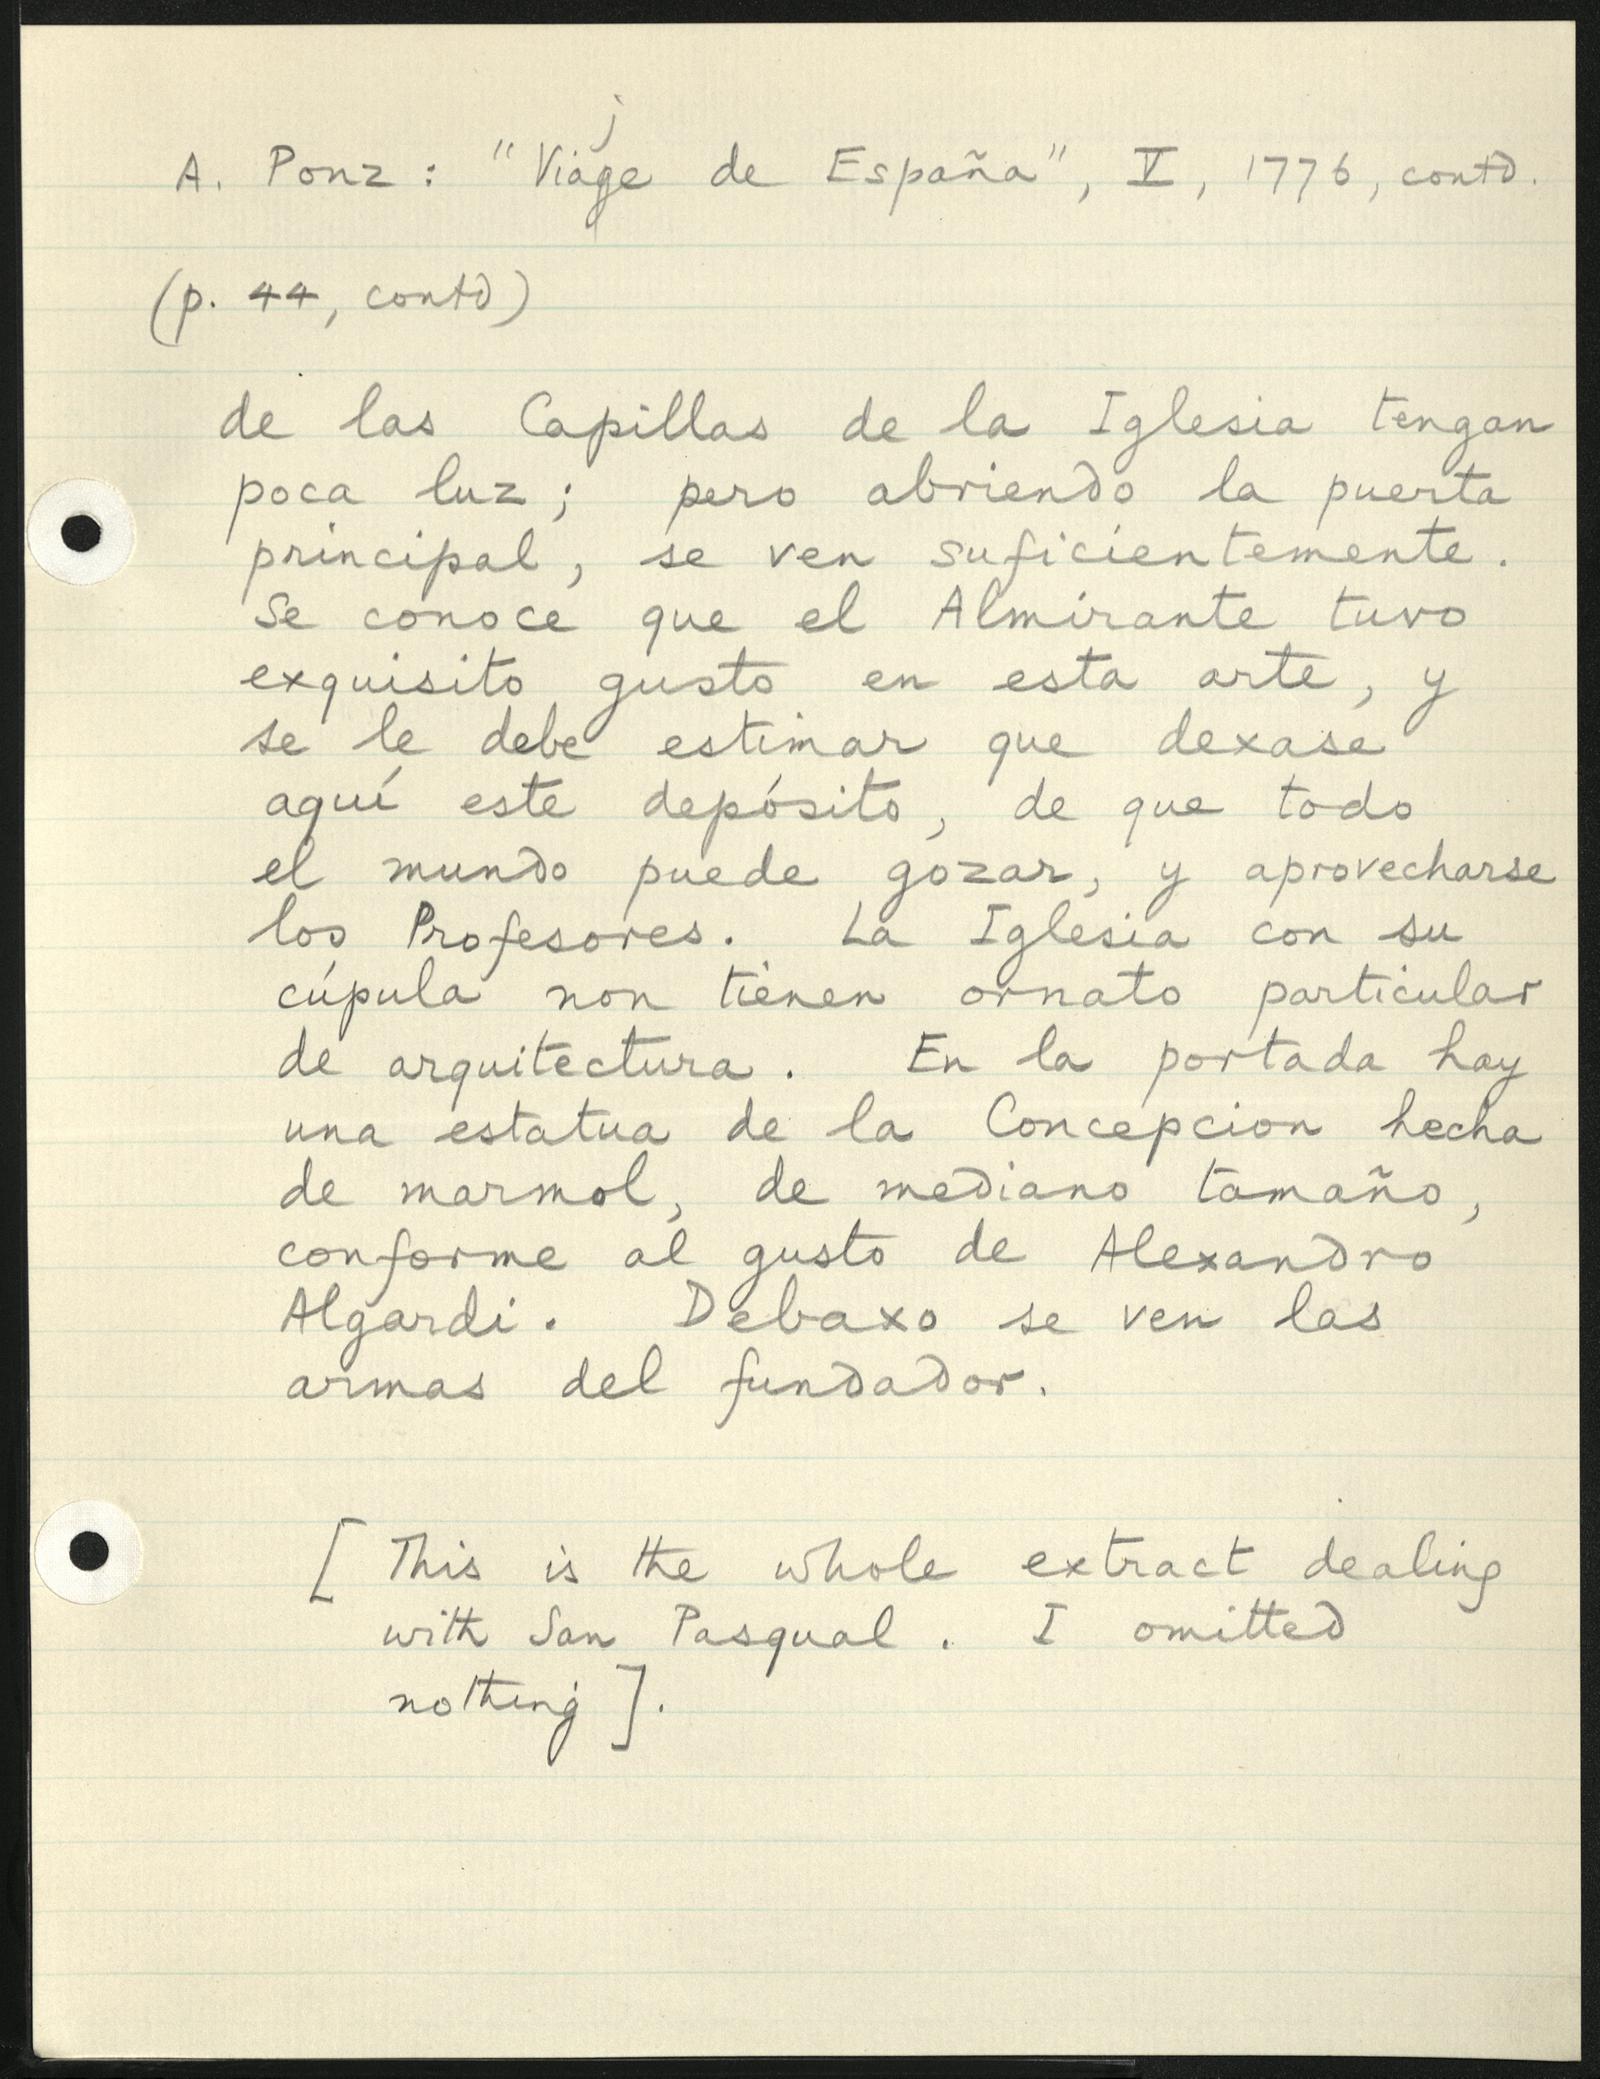 j
A. Ponz: "Viage de España", V, 1776, contd.
(p. 44, contd)
de las Capillas de la Iglesia tengan
poca luz; pero abriendo la puerta
principal, se ven suficientemente.
Se conoce que el Almirante tuvo
exquisito gusto en esta arte, y
se le debe estimar que dexase
aquí este depósito, de que todo
el mundo puede gozar, y aprovecharse
los Profesores. La Iglesia con su
cúpula non tienen ornato particular
de arquitectura. En la portada hay
una estatua de la Concepcion hecha
de marmol, de mediano tamaño,
conforme al gusto de Alexandro
Algardi. Debaxo se ven las
armas del fundador.
[This is the whole extract dealing
with San Pasqual. I omitted
nothing].